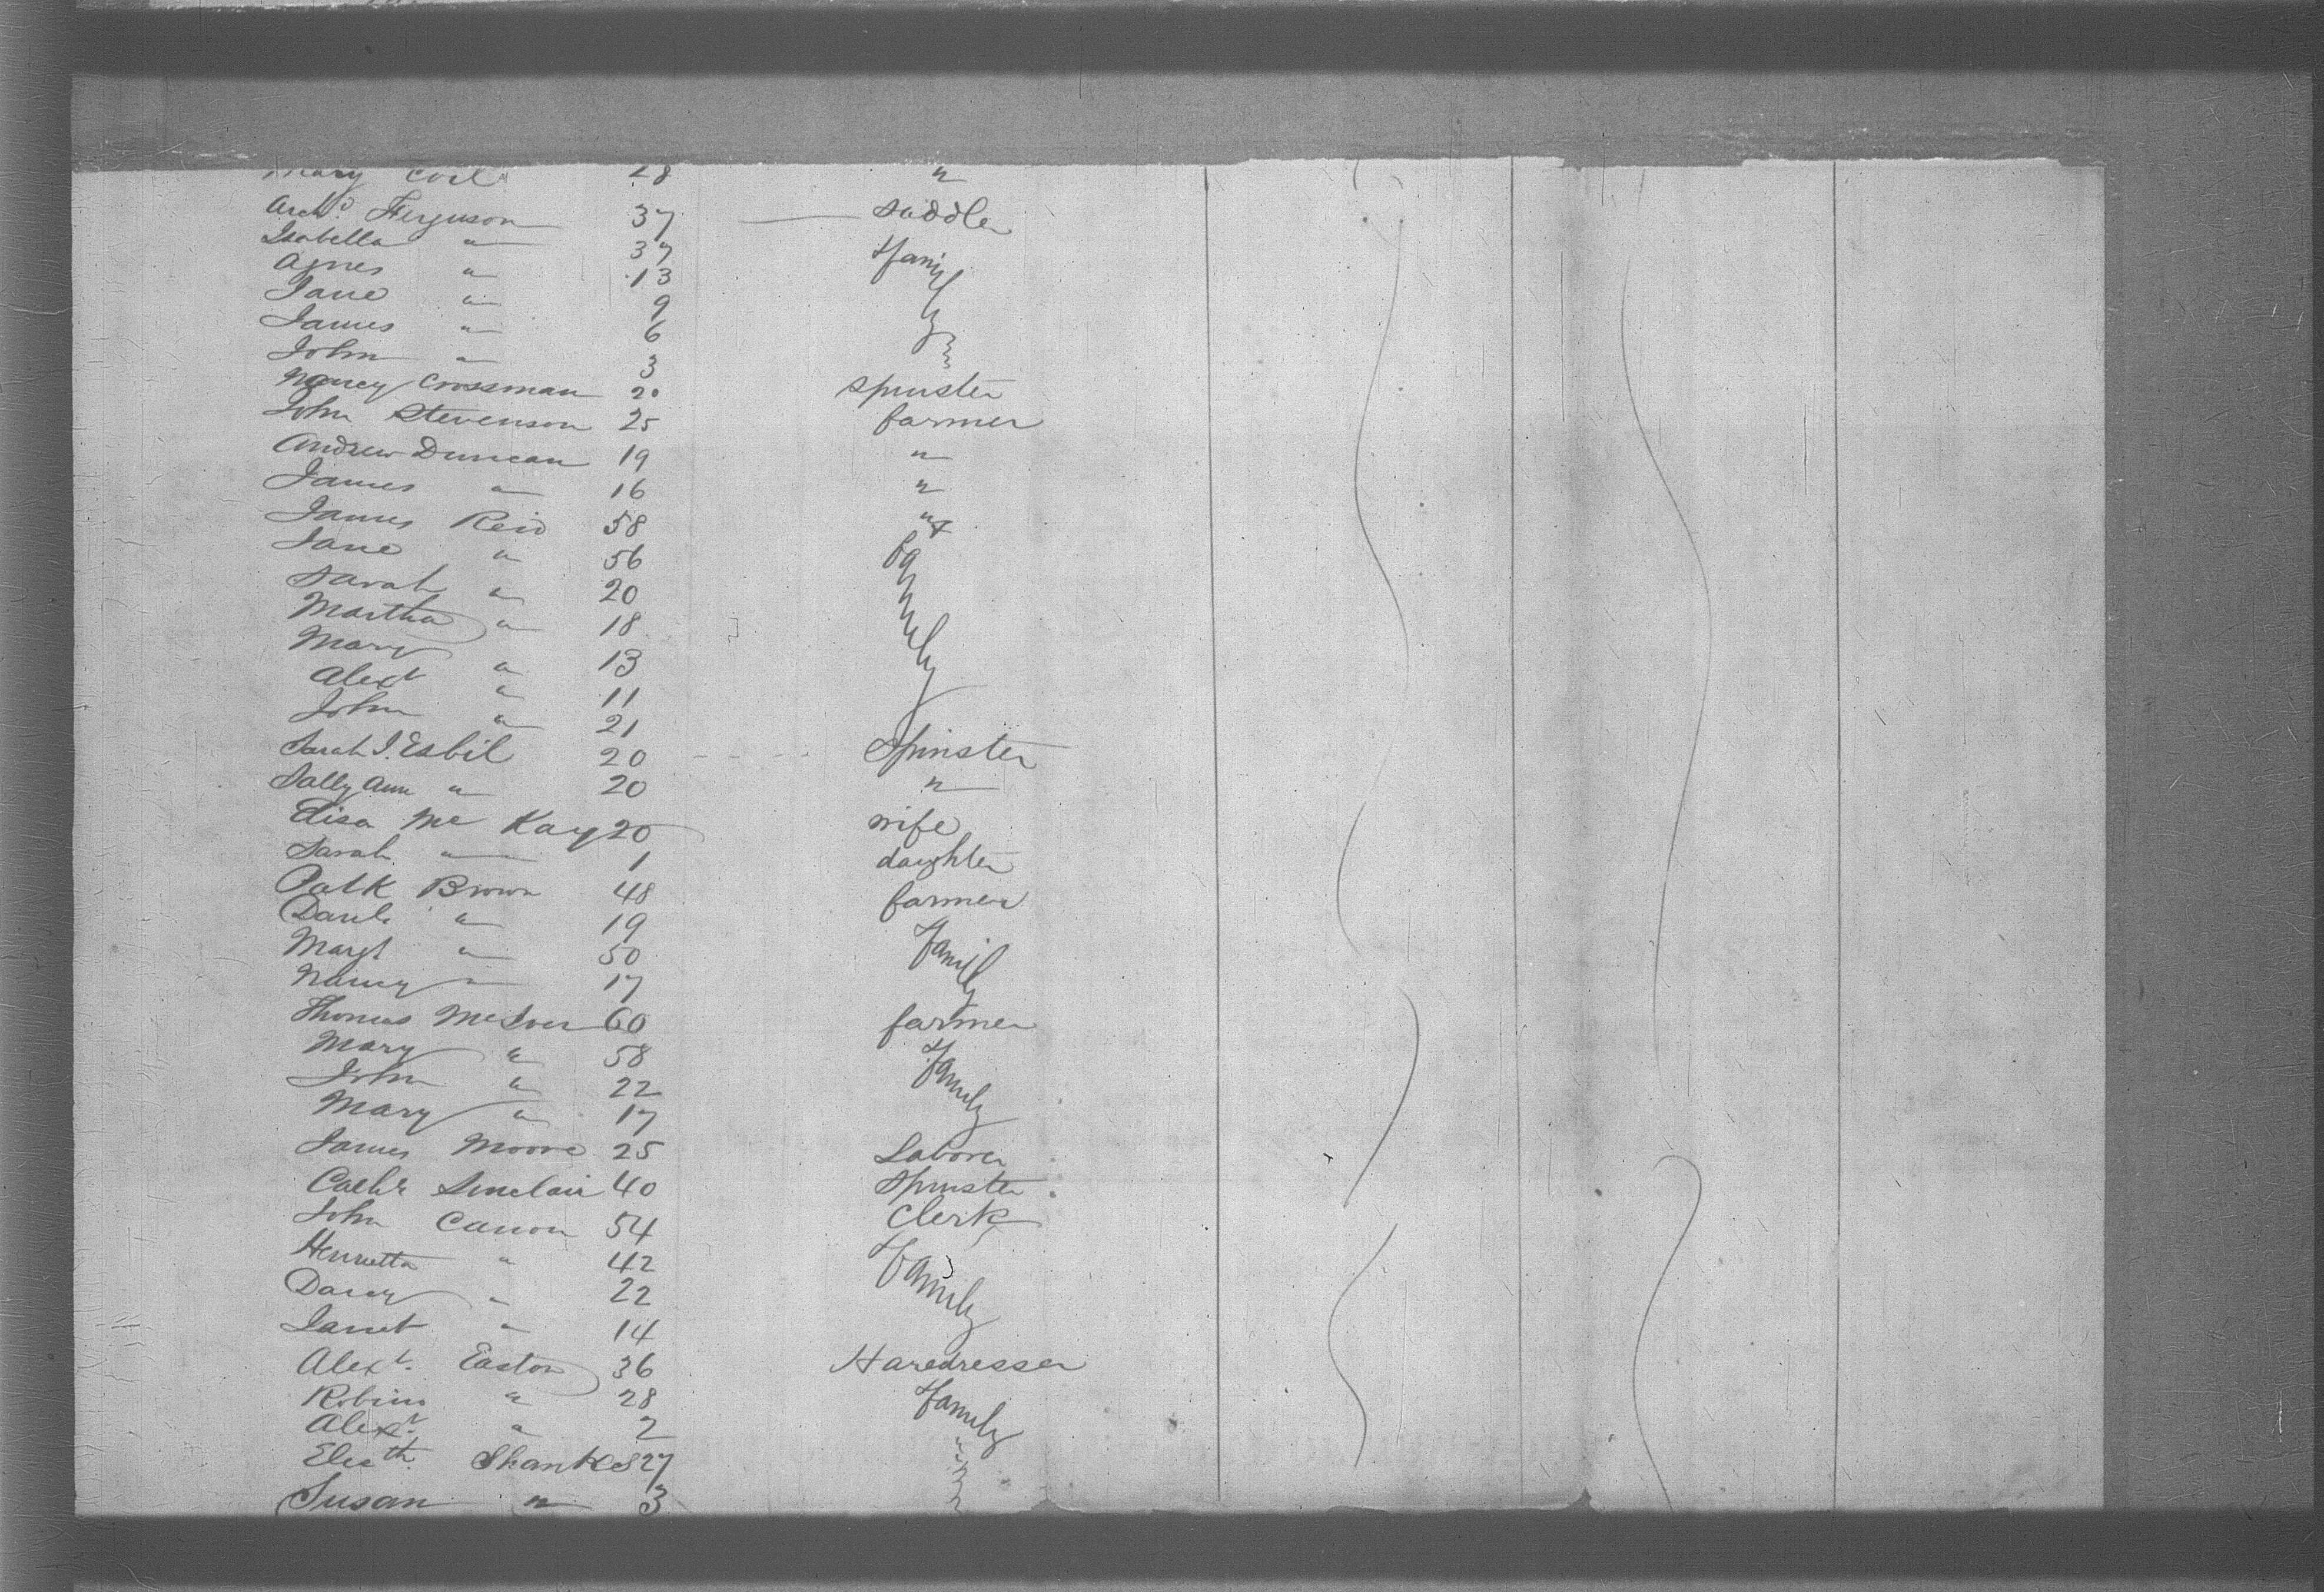 Mary Coil 28 "
Archd Ferguson 37 Saddler
Isabella " 37 Family
Agnes " 13
Jane " 9
James " 6
John " 3
Nancy Crossman 20 Spinster
John Stevenson 25 farmer
Andrew Duncan 19 "
James " 16 "
James Reid 58 "
Jane " 56 family
Sarah " 20
Martha " 18
Mary " 13
Alexr " 11
John " 21
Sarah J. Esbil 20 Spinster
Sally Ann " 20 "
Elisa Mc Kay 20 wife
Sarah " 1 daughter
Patk Brown 48 farmer
Danl. " 19
Margt " 50 Family
Nancy " 17
Thomas McIver 60 farmer
Mary " 58 Family
John " 22
Mary " 17
James Moore 25 Laborer
Sinclair 40 Spinster
John Canon 54 Clerk
Henrietta " 42 Family
Darcy " 22
Janet " 14
Alexr. Easton 36 Haredresser
Robina " 28 Family
Alexr. " 2
Elisth. Shankes 27 "
Susan " 3 "